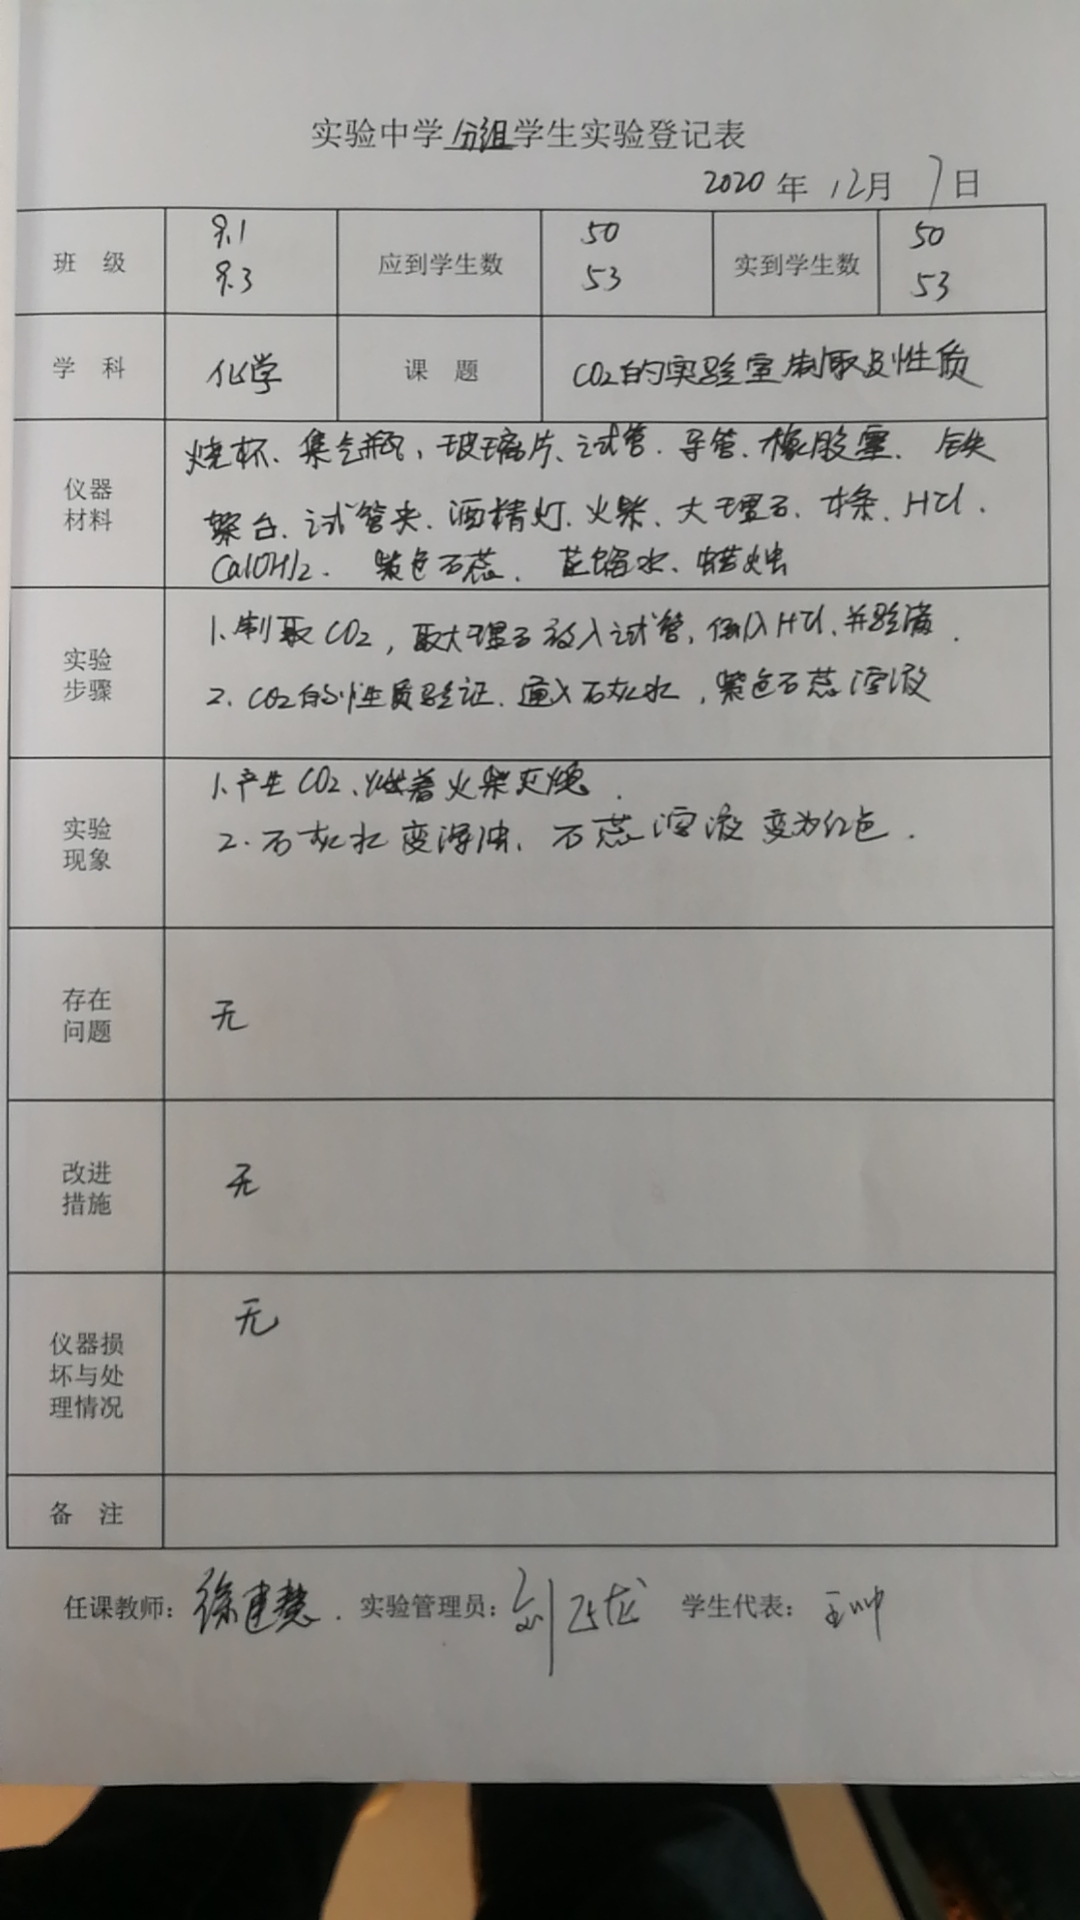 实验中学分组学生实验登记表
2020年12月7日
班级 9.1 9.3 应到学生数 50 53 实到学生数 50 53
学科 化学 课题 CO2的实验室制取及性质
仪器材料
烧杯、集气瓶、玻璃片、试管、导管、橡胶塞、铁
架台、试管夹、酒精灯、火柴、大理石、木条、HCl、
Ca(OH)2、紫色石蕊、蒸馏水、蜡烛
实验步骤
1.制取CO2,取大理石放入试管,倒入HCl,并验满.
2.CO2的性质验证、通入石灰水,紫色石蕊溶液
实验现象
1.产生CO2、燃着火柴灭熄.
2.石灰水变浑浊、石蕊溶液变为红色.
存在问题
无
改进措施
无
仪器损坏与处理情况
无
备注
任课教师:徐建慧. 实验管理员:刘 龙 学生代表:王帅